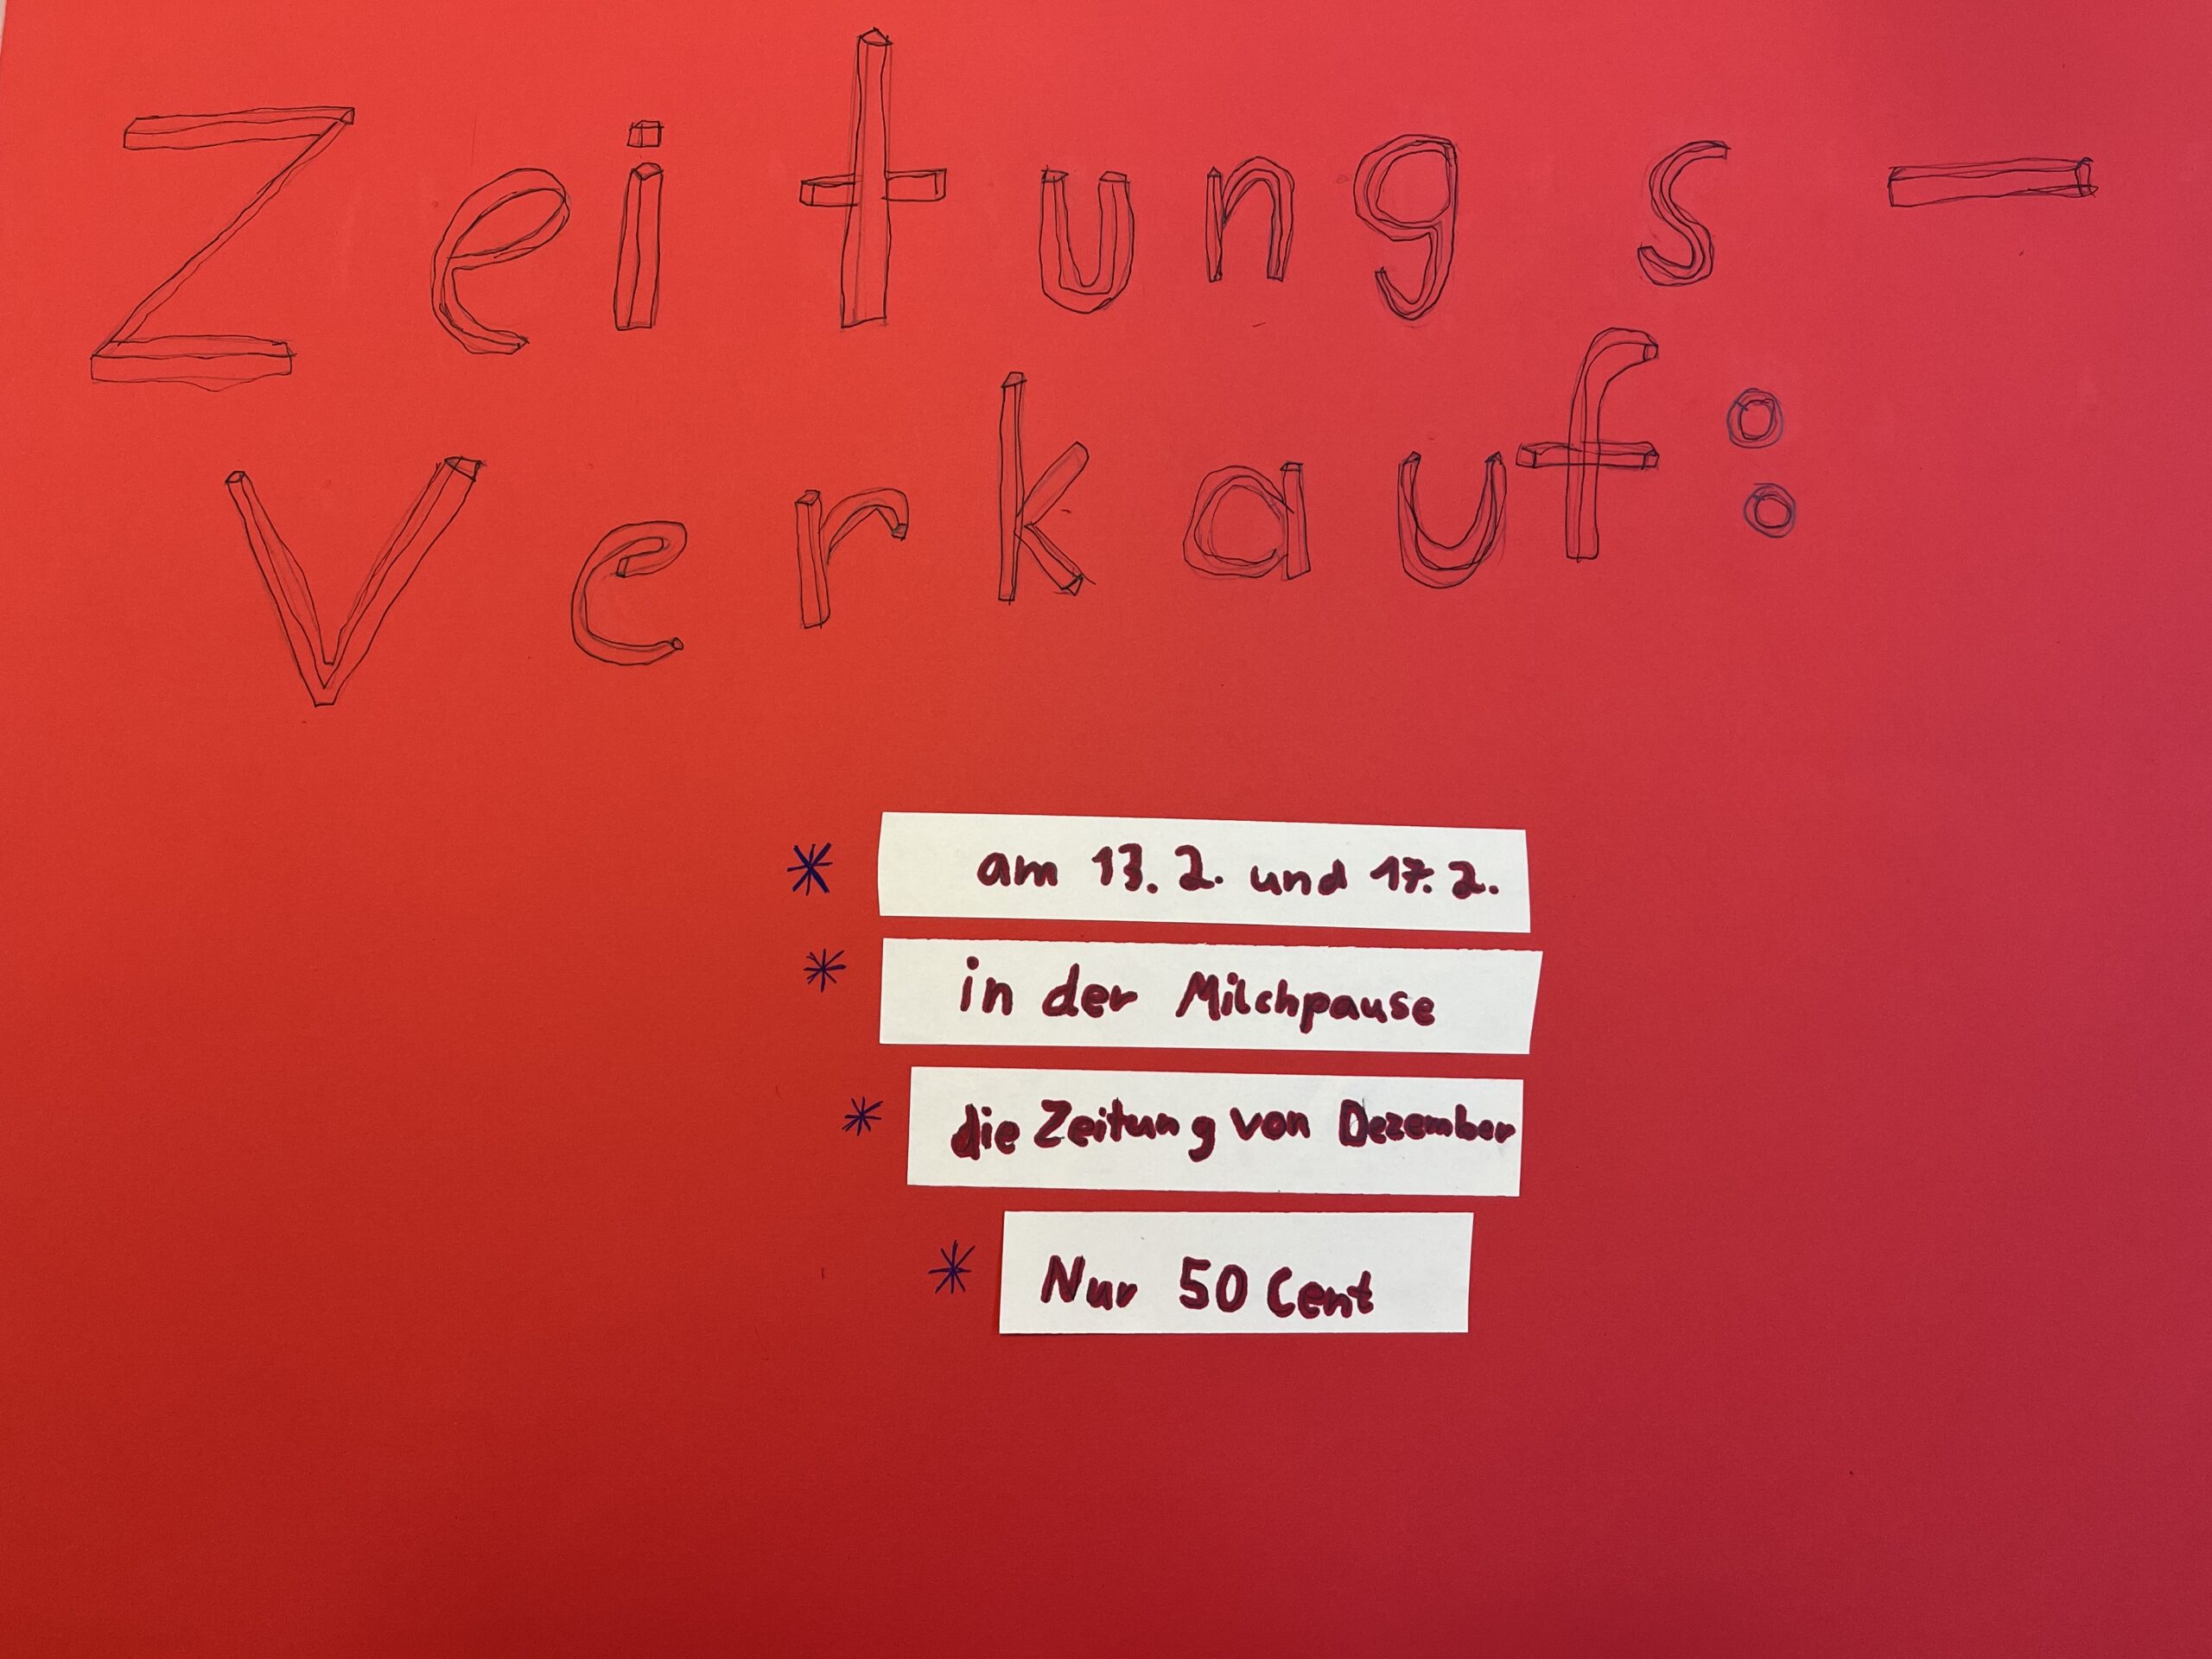 Zeitungs-
Verkauf:
* am 13. 2. und 17. 2.
* in der Milchpause
* die Zeitung von Dezember
* Nur 50 Cent